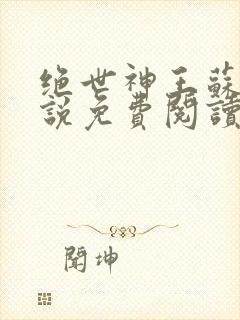 绝世神王蘇
說免費閱讀
聞坤